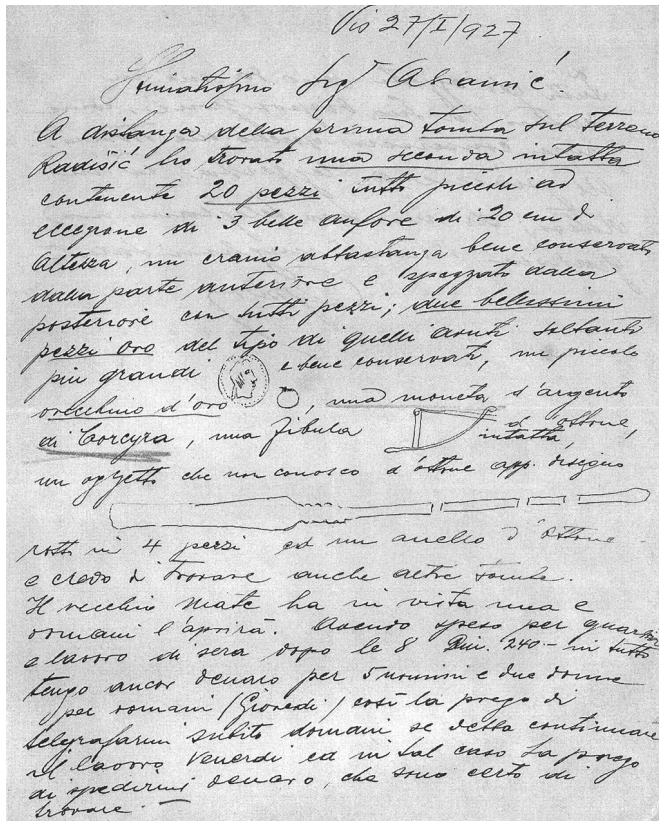 Vis 27/I/927
Stimatissimo Sigr Abramić!
A distanza della prima tomba sul terreno
Radišić ho trovato una seconda intatta
contenente 20 pezzi tutti piccoli ad
eccezione di 3 belle anfore di 20 cm di
altezza, un cranio abbastanza bene conservato
dalla parte anteriore e spezzato dalla
posteriore con tutti pezzi; due bellissimi
pezzi oro del tipo di quelli avuti soltanto
più grandi e bene conservati, un piccolo
orecchino d'oro, una moneta d'argento
di Corcyra, una fibula d'ottone,
intatta,
un oggetto che non conosco d'ottone app. disegno
rotto in 4 pezzi ed un anello d'ottone
e credo di trovare anche altre tombe.
Il vecchio Mate ha in vista una e
domani l'aprirà. Avendo speso per
e lavoro di sera dopo le 8 Din. 240.- in tutto
tengo ancor denaro per 5 uomini e due donne
per domani (Giovedì) così la prego di
telegrafarmi subito domani se debbo continuare
il lavoro Venerdì ed in tal caso La prego
di spedirmi denaro, che sono certo di
trovare. —